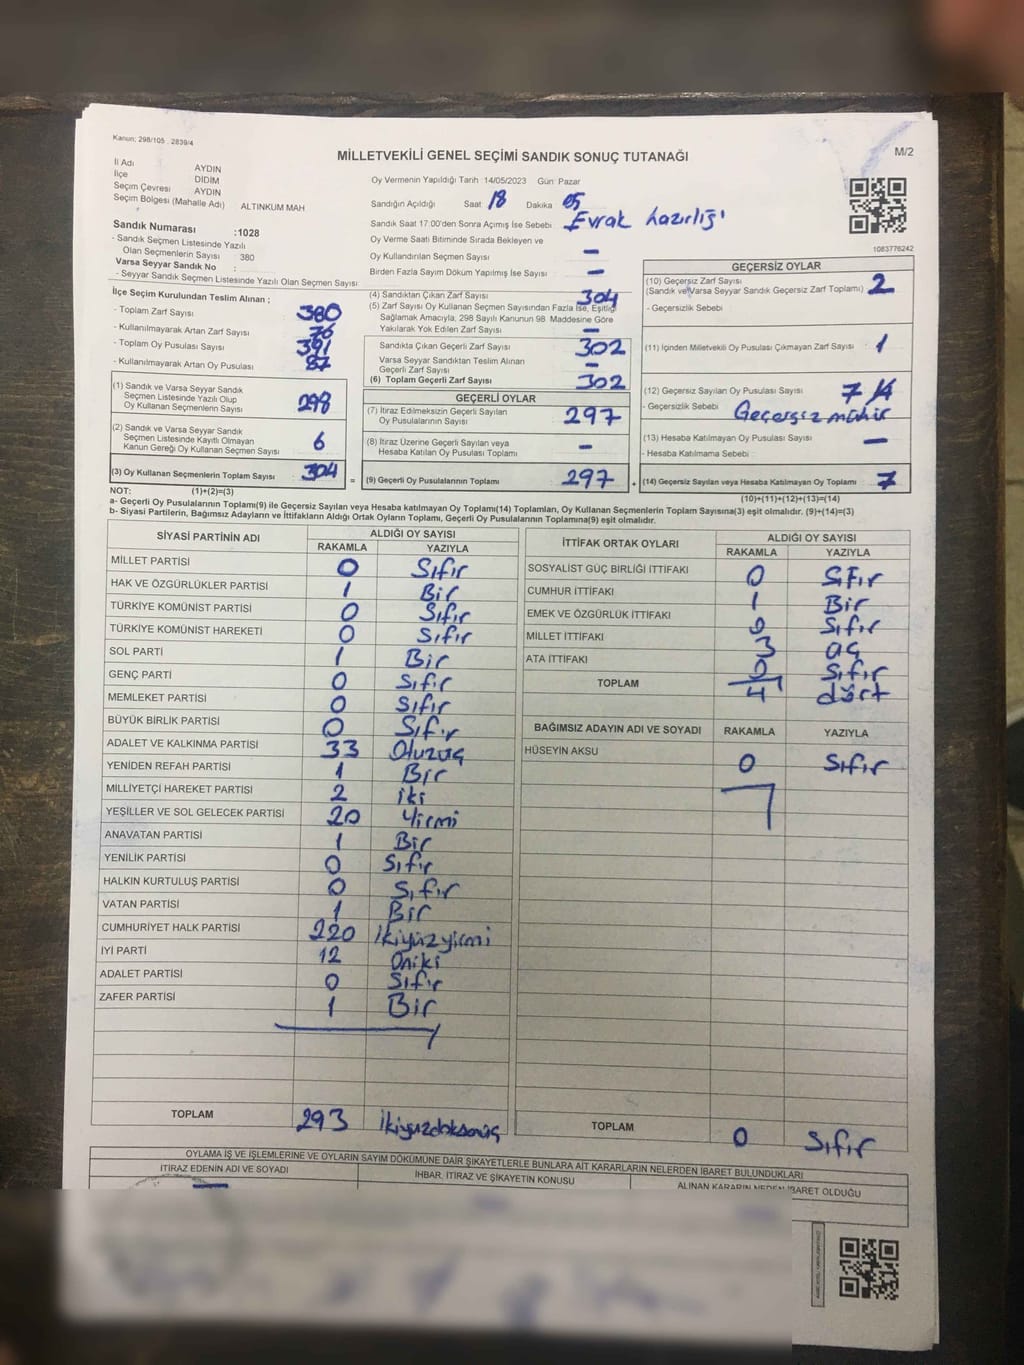 Kanun; 298/105 . 2839/4
MİLLETVEKİLİ GENEL SEÇİMİ SANDIK SONUÇ TUTANAĞI
M/2
İl Adı AYDIN
İlçe DİDİM
Seçim Çevresi AYDIN
Seçim Bölgesi (Mahalle Adı) ALTINKUM MAH
Sandık Numarası :1028
- Sandık Seçmen Listesinde Yazılı
Olan Seçmenlerin Sayısı : 380
Varsa Seyyar Sandık No :
- Seyyar Sandık Seçmen Listesinde Yazılı Olan Seçmen Sayısı :
Oy Vermenin Yapıldığı Tarih 14/05/2023 Gün: Pazar
Sandığın Açıldığı Saat 18 Dakika 05
Sandık Saat 17:00'den Sonra Açımış İse Sebebi : Evrak hazırlığı
Oy Verme Saati Bitiminde Sırada Bekleyen ve
Oy Kullandırılan Seçmen Sayısı : –
Birden Fazla Sayım Döküm Yapılmış İse Sayısı : –
1083776242
İlçe Seçim Kurulundan Teslim Alınan ;
- Toplam Zarf Sayısı : 380
- Kullanılmayarak Artan Zarf Sayısı : 76
- Toplam Oy Pusulası Sayısı : 391
- Kullanılmayarak Artan Oy Pusulası : 87
(1) Sandık ve Varsa Seyyar Sandık
Seçmen Listesinde Yazılı Olup
Oy Kullanan Seçmenlerin Sayısı : 298
(2) Sandık ve Varsa Seyyar Sandık
Seçmen Listesinde Kayıtlı Olmayan
Kanun Gereği Oy Kullanan Seçmen Sayısı : 6
(3) Oy Kullanan Seçmenlerin Toplam Sayısı : 304
(4) Sandıktan Çıkan Zarf Sayısı : 304
(5) Zarf Sayısı Oy Kullanan Seçmen Sayısından Fazla İse, Eşitliği
Sağlamak Amacıyla, 298 Sayılı Kanunun 98 Maddesine Göre
Yakılarak Yok Edilen Zarf Sayısı : –
Sandıkta Çıkan Geçerli Zarf Sayısı : 302
Varsa Seyyar Sandıktan Teslim Alınan
Geçerli Zarf Sayısı : –
(6) Toplam Geçerli Zarf Sayısı : 302
GEÇERLİ OYLAR
(7) İtiraz Edilmeksizin Geçerli Sayılan
Oy Pusulalarının Sayısı : 297
(8) İtiraz Üzerine Geçerli Sayılan veya
Hesaba Katılan Oy Pusulası Toplamı : –
= (9) Geçerli Oy Pusulalarının Toplamı : 297
GEÇERSİZ OYLAR
(10) Geçersiz Zarf Sayısı
(Sandık ve Varsa Seyyar Sandık Geçersiz Zarf Toplamı) : 2
- Geçersizlik Sebebi :
(11) İçinden Milletvekili Oy Pusulası Çıkmayan Zarf Sayısı : 1
(12) Geçersiz Sayılan Oy Pusulası Sayısı : 7 4
- Geçersizlik Sebebi : Geçersiz mühür
(13) Hesaba Katılmayan Oy Pusulası Sayısı : –
- Hesaba Katılmama Sebebi :
+ (14) Geçersiz Sayılan veya Hesaba Katılmayan Oy Toplamı : 7
NOT: (1)+(2)=(3)
(10)+(11)+(12)+(13)=(14)
a- Geçerli Oy Pusulaların Toplamı(9) ile Geçersiz Sayılan veya Hesaba katılmayan Oy Toplam(14) Toplamları, Oy Kullanan Seçmenlerin Toplam Sayısına(3) eşit olmalıdır. (9)+(14)=(3)
b- Siyasi Partilerin, Bağımsız Adayların ve İttifakların Aldığı Ortak Oyların Toplamı, Geçerli Oy Pusulalarının Toplamına(9) eşit olmalıdır.
SİYASİ PARTİNİN ADI ALDIĞI OY SAYISI
RAKAMLA YAZIYLA
MİLLET PARTİSİ 0 Sıfır
HAK VE ÖZGÜRLÜKLER PARTİSİ 1 Bir
TÜRKİYE KOMÜNİST PARTİSİ 0 Sıfır
TÜRKİYE KOMÜNİST HAREKETİ 0 Sıfır
SOL PARTİ 1 Bir
GENÇ PARTİ 0 Sıfır
MEMLEKET PARTİSİ 0 Sıfır
BÜYÜK BİRLİK PARTİSİ 0 Sıfır
ADALET VE KALKINMA PARTİSİ 33 Otuzüç
YENİDEN REFAH PARTİSİ 1 Bir
MİLLİYETÇİ HAREKET PARTİSİ 2 iki
YEŞİLLER VE SOL GELECEK PARTİSİ 20 Yirmi
ANAVATAN PARTİSİ 1 Bir
YENİLİK PARTİSİ 0 Sıfır
HALKIN KURTULUŞ PARTİSİ 0 Sıfır
VATAN PARTİSİ 1 Bir
CUMHURİYET HALK PARTİSİ 220 İkiyüzyirmi
İYİ PARTİ 12 Oniki
ADALET PARTİSİ 0 Sıfır
ZAFER PARTİSİ 1 Bir
TOPLAM 293 İkiyüzdoksanüç
İTTİFAK ORTAK OYLARI ALDIĞI OY SAYISI
RAKAMLA YAZIYLA
SOSYALİST GÜÇ BİRLİĞİ İTTİFAKI 0 Sıfır
CUMHUR İTTİFAKI 1 Bir
EMEK VE ÖZGÜRLÜK İTTİFAKI 0 Sıfır
MİLLET İTTİFAKI 3 üç
ATA İTTİFAKI 0 Sıfır
TOPLAM 4 dört
BAĞIMSIZ ADAYIN ADI VE SOYADI RAKAMLA YAZIYLA
HÜSEYİN AKSU 0 Sıfır
TOPLAM 0 Sıfır
OYLAMA İŞ VE İŞLEMLERİNE VE OYLARIN SAYIM DÖKÜMÜNE DAİR ŞİKAYETLERLE BUNLARA AİT KARARLARIN NELERDEN İBARET BULUNDUKLARI
İTİRAZ EDENİN ADI VE SOYADI İHBAR, İTİRAZ VE ŞİKAYETİN KONUSU ALINAN KARARIN NEDEN İBARET OLDUĞU